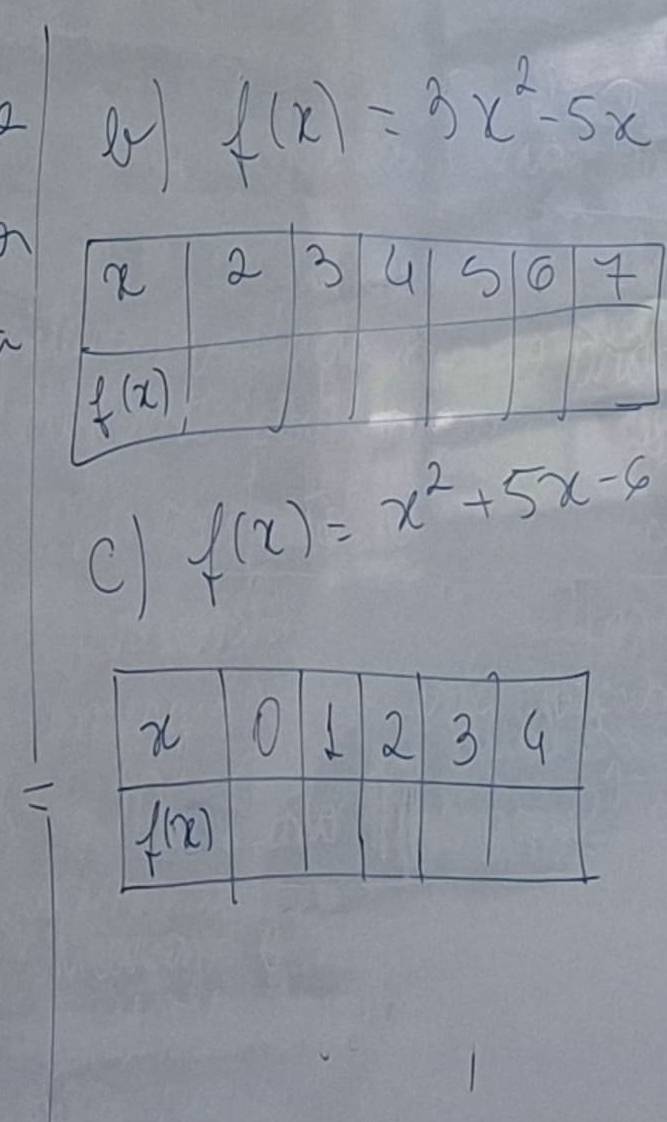 b) f(x) = 3x²-5x
x 2 3 4 5 6 7
f(x)
c) f(x) = x²+5x-6
x 0 1 2 3 4
f(x)
=